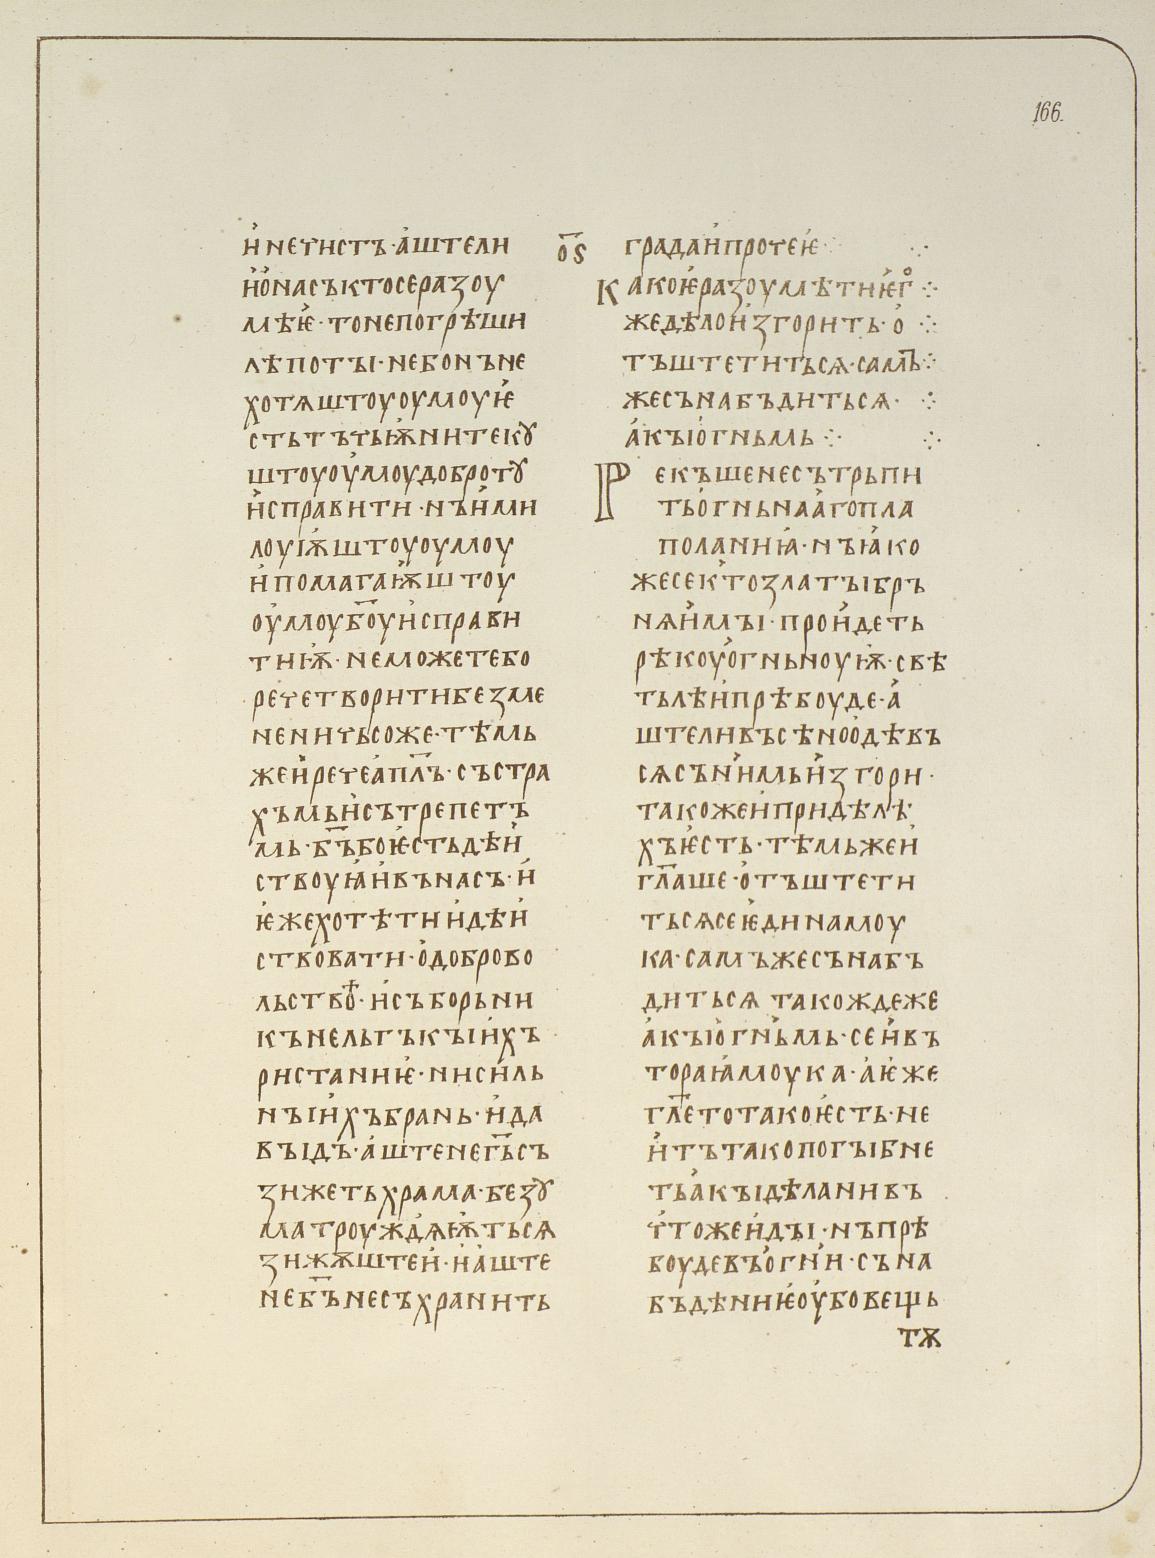 166.
и҆ нечистъ· а҆ште ли
и҆ о҆ насъ кто се разоу
мѣѥ҆· то не погрѣши
лѣпоты· небонъ не
хотѧштоу оумоу ѥ҆
стьтътьѭ҆ нитекꙋ
штоу оу҆моу добротꙋ
и҆справити· нъ и҆ ми
лоуѭ҆штоу оумоу
и҆ помагаѭ҆штоу
оу҆моу бо҃у и҆справи
ти ѭ҆· не може те бо
рече творити безме
не ничьсоже· тѣмь
же и҆ рече а҆п҃лъ· съ стра
хъмь и҆ съ трепетъ
мь· б҃ъ бо ѥ҆сть дѣи҆
ствоуꙗ҆и҆ въ насъ· и҆
ѥ҆же хотѣти и҆ дѣи҆
ствовати· о҆ доброво
льствѣ· и҆ съ борьни
къ нельтъкыи҆хъ
ристаниѥ҆· ни сильь
ныи҆хъ брань· и҆ да
выдъ· а҆ште не г҃ь съ
зижеть храма· безꙋ
ма троуждѧѭ҆тьсѧ
зижѫштеи҆· и҆ а҆ште
не б҃ъ не съхранить
о҃ѕ
града и҆ прочеѥ҆
Како ѥ҆ разоумѣти ѥ҆г
же дѣло и҆згорить· о҆
тъштетитьсѧ· самъ
же сънабъдитьсѧ·
а҆кы о҆гньмь
Рекъше не сътрьпи
ть о҆гньнааго пла
полания҆· нъ ꙗ҆ко
же се кто златы бръ
нѧи҆мы· прои҆деть
рѣкоу о҆гньноуѭ҆· свѣ
тьлѣи҆ прѣбоуде· а҆
ште ли въ сѣно о҆дѣвъ
сѧ съ нимь и҆згори·
такоже и҆ при дѣлѣ
хъ ѥ҆сть· тѣмьже и҆
гл҃аше· о҆тъштети
тьсѧ се ѥ҆дина моу
ка· самъ же сънабъ
дитьсѧ такожде же
а҆кы о҆гньмь· се и҆ въ
тораꙗ҆ моука· а҆ ѥ҆же
гл҃ето тако ѥ҆сть· не
и҆тъ тако погыбне
ть а҆кы дѣла ни въ
чтоже и҆ды· нъ прѣ
боуде въ о҆гни҆· съна
бъдѣниѥ҆ оу҆бо вещь
тѫ